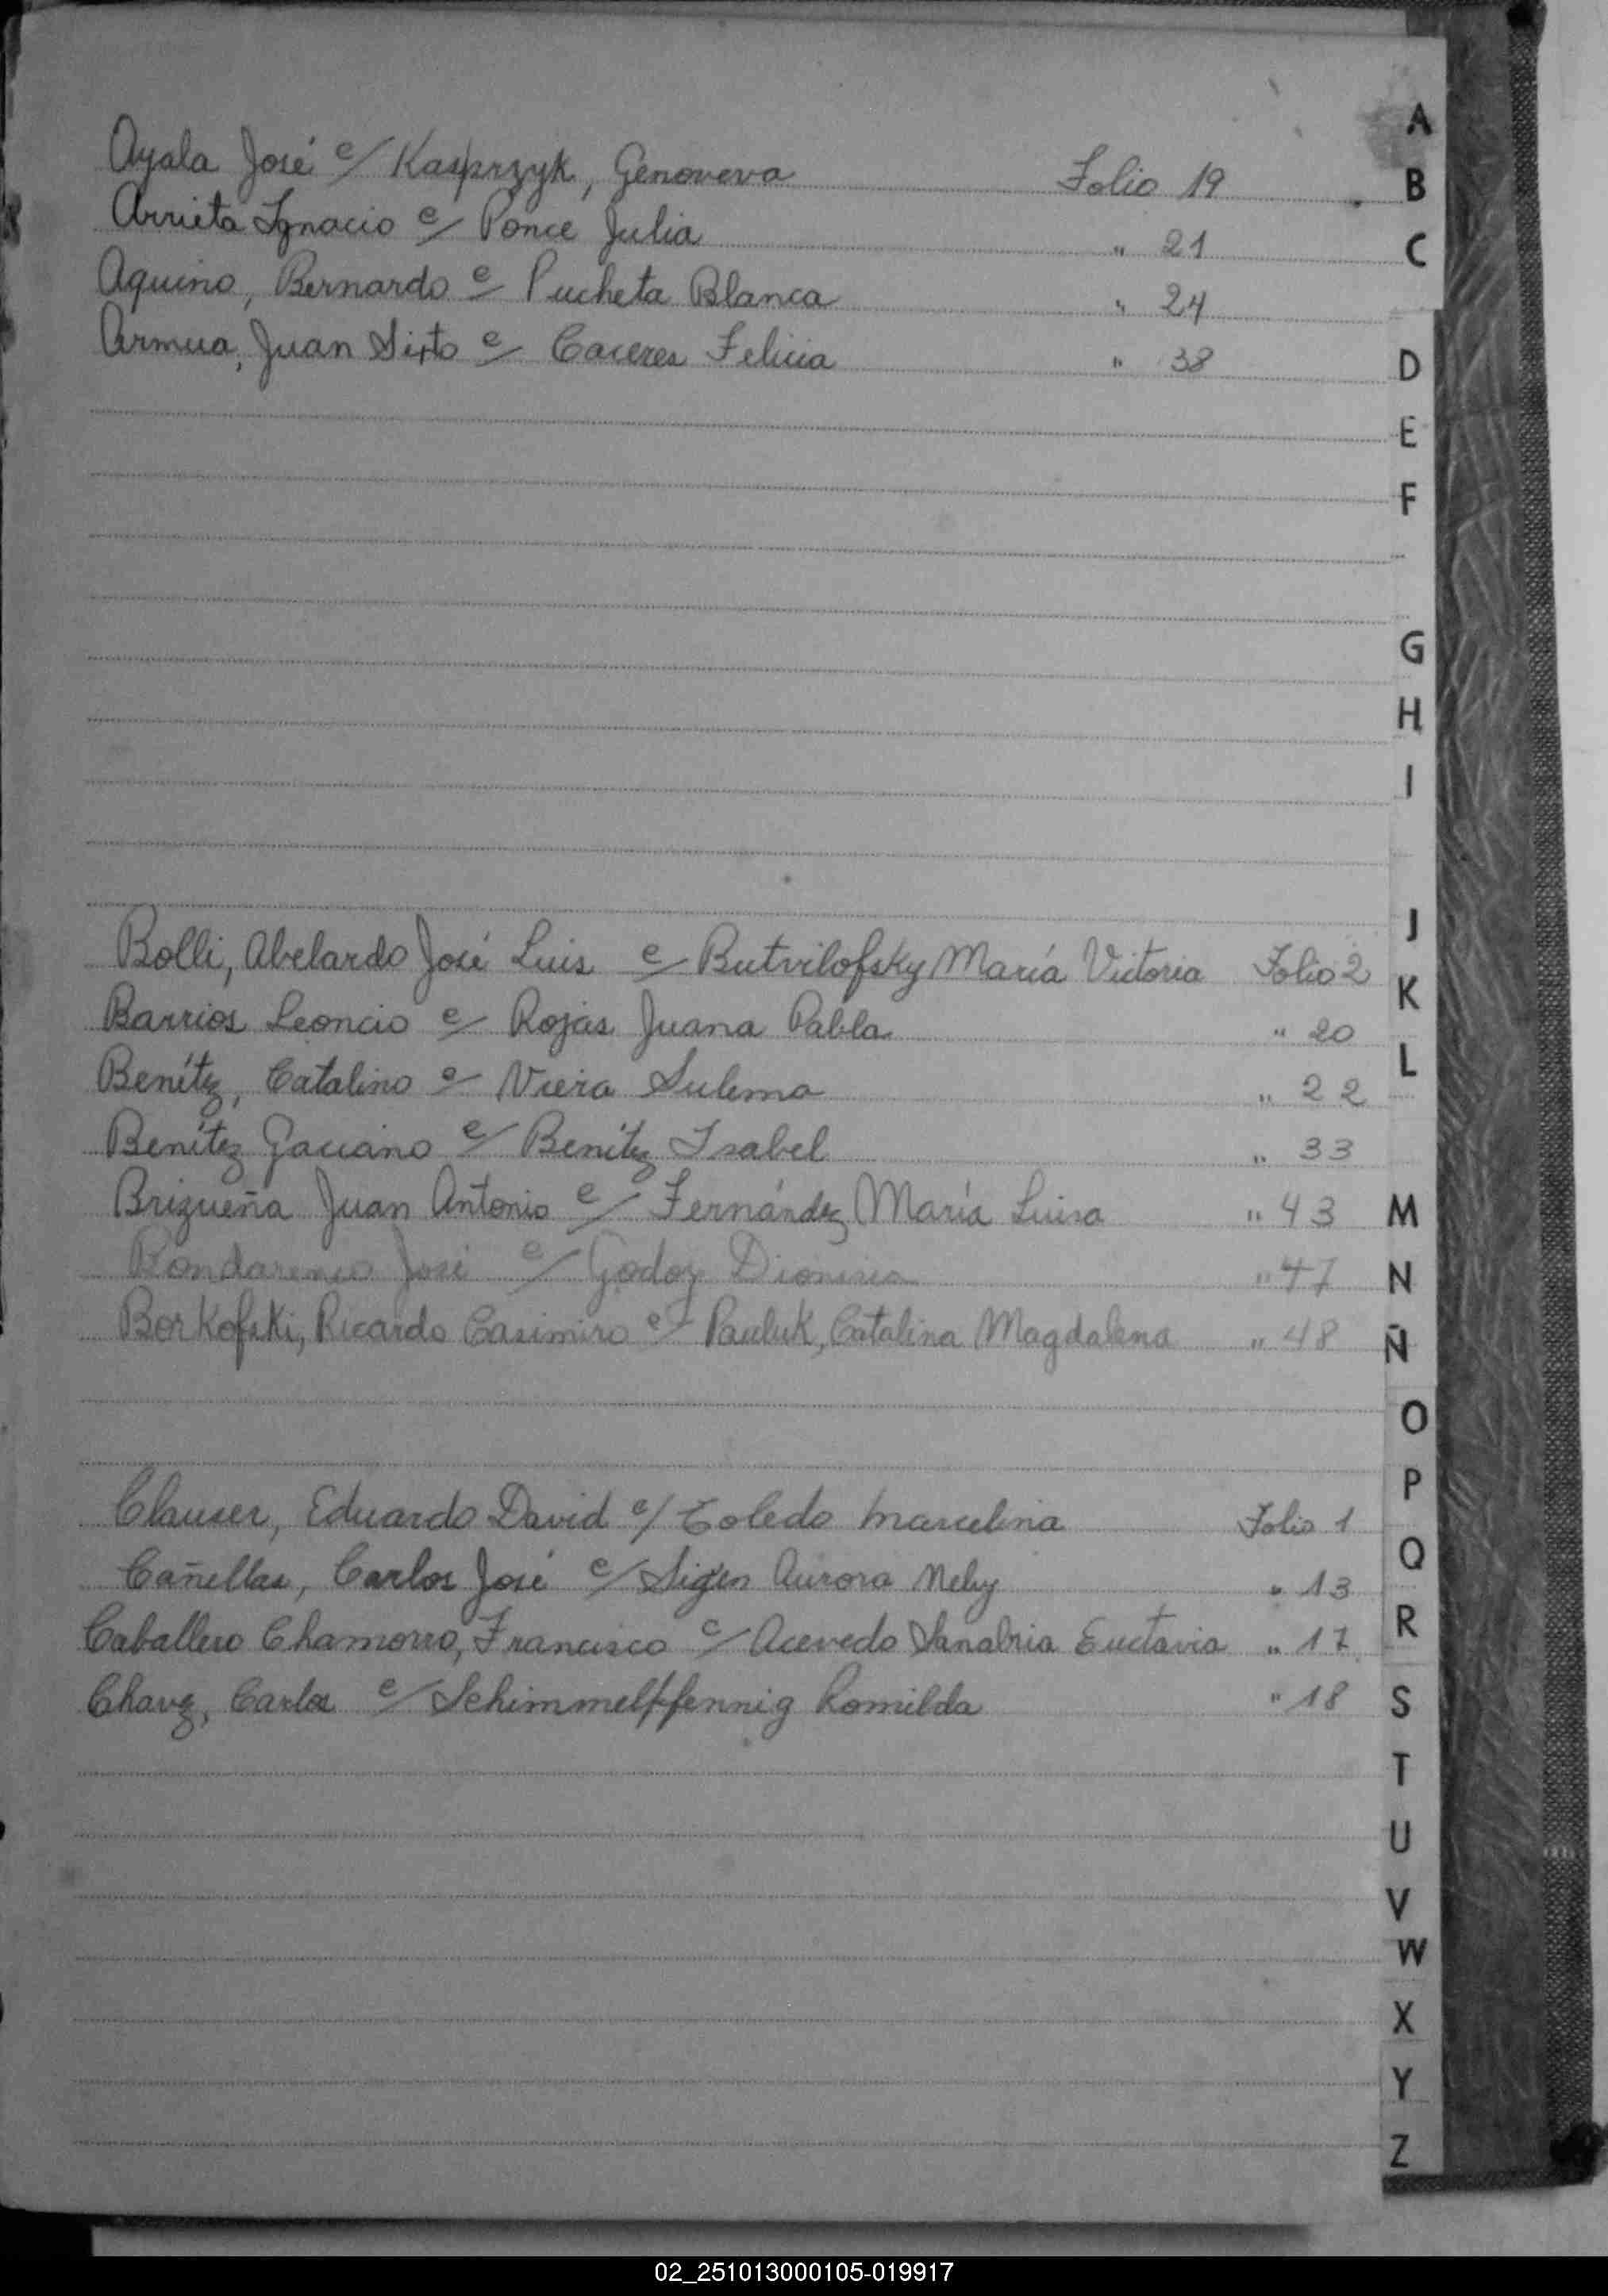 A
Ayala José c/ Kasprzyk, Genoveva Folio 19
B
Arrieta Ignacio c/ Ponce Julia " 21
C
Aquino, Bernardo c/ Pucheta Blanca " 24
Armua, Juan Sixto c/ Caceres Felicia " 38
D
E
F
G
H
I
J
Bolli, Abelardo José Luis c/ Butvilofsky María Victoria Folio 2
K
Barrios Leoncio c/ Rojas Juana Pabla " 20
L
Benítez, Catalino c/ Vieira Sulema " 22
Benítez Gaciano c/ Benítez Isabel " 33
Brizueña Juan Antonio c/ Fernández María Luisa " 43
M
Bondarenco José c/ Godoy Dionisia " 47
N
Borkofski, Ricardo Casimiro c/ Pauluk, Catalina Magdalena " 48
Ñ
O
P
Clauser, Eduardo David c/ Toledo Marcelina Folio 1
Q
Cañellas, Carlos José c/ Sigen Aurora Nely " 13
R
Caballero Chamorro, Francisco c/ Acevedo Sanabria Eustavia " 17
Chavez, Carlos c/ Schimmelpfennig Romilda " 18
S
T
U
V
W
X
Y
Z
02_251013000105-019917